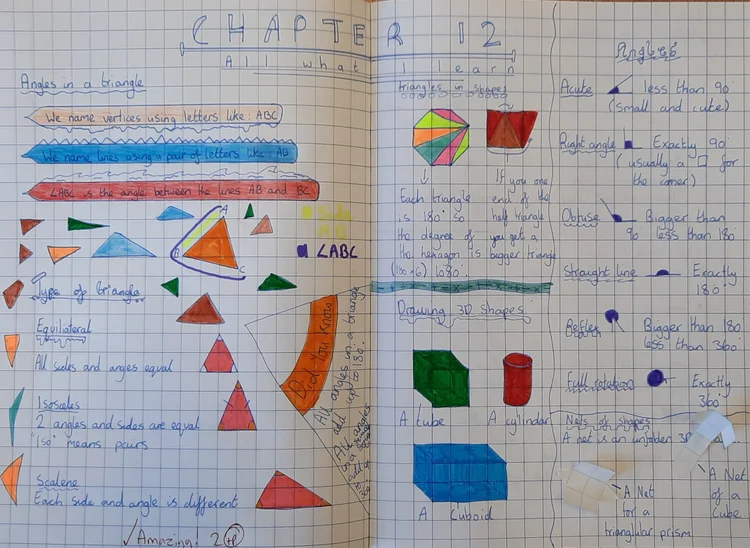 CHAPTER 12
All what I learn
Angles in a triangle
We name vertices using letters like: ABC
We name lines using a pair of letters like: AB
∠ABC is the angle between the lines AB and BC
A
B
C
Side
AB
∠ABC
Type of triangle
Equilateral
All sides and angles equal
Isosceles
2 angles and sides are equal
"iso" means pairs
Scalene
Each side and angle is different
✓ Amazing! 2
Did You Know
All angles in a triangle
add up to 180°
All angles
in a
triangles in shapes
Each triangle
is 180° so
the degree of
the hexagon is
(180×6) 1080.
If you one
end of the
half triangle
you get a
bigger triangle
Drawing 3D Shapes
A Cube
A cylindar
A Cuboid
Angles
Acute less than 90°
(small and cute)
Right angle Exactly 90°
(usually a □ for
the corner)
Obtuse Bigger than
90 less than 180
Straight line Exactly
180°
Reflex Bigger than 180
less than 360°
Full rotation Exactly
360
Nets of shapes
A net is an unfolden 3D
A Net
for a
trianglular prism
A Net
of a
Cube